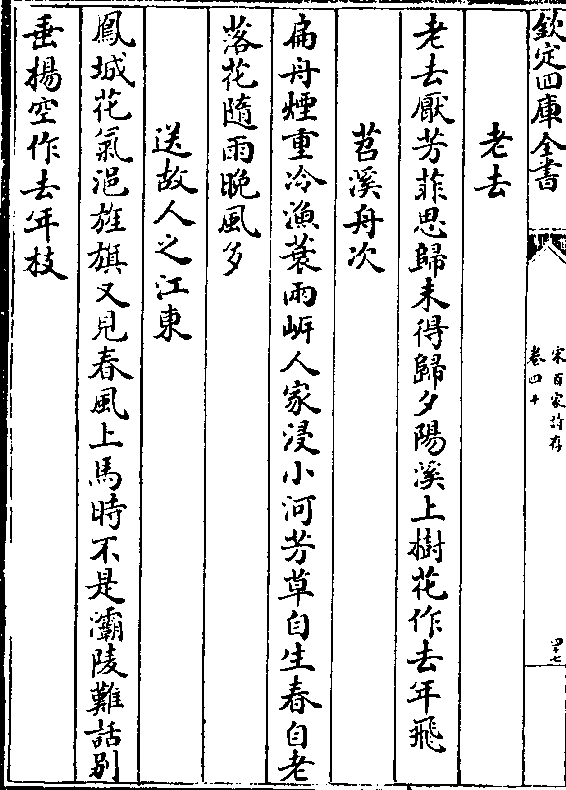 欽定四庫全書
宋百家詩存
卷四十
四十七
老去
老去厭芳菲思歸未得歸夕陽溪上樹花作去年飛
苕溪舟次
扁舟煙重冷漁蓑兩岍人家浸小河芳草自生春自老
落花隨雨晚風多
送故人之江東
鳳城花氣浥旌旗又見春風上馬時不是灞陵難話别
垂楊空作去年枝